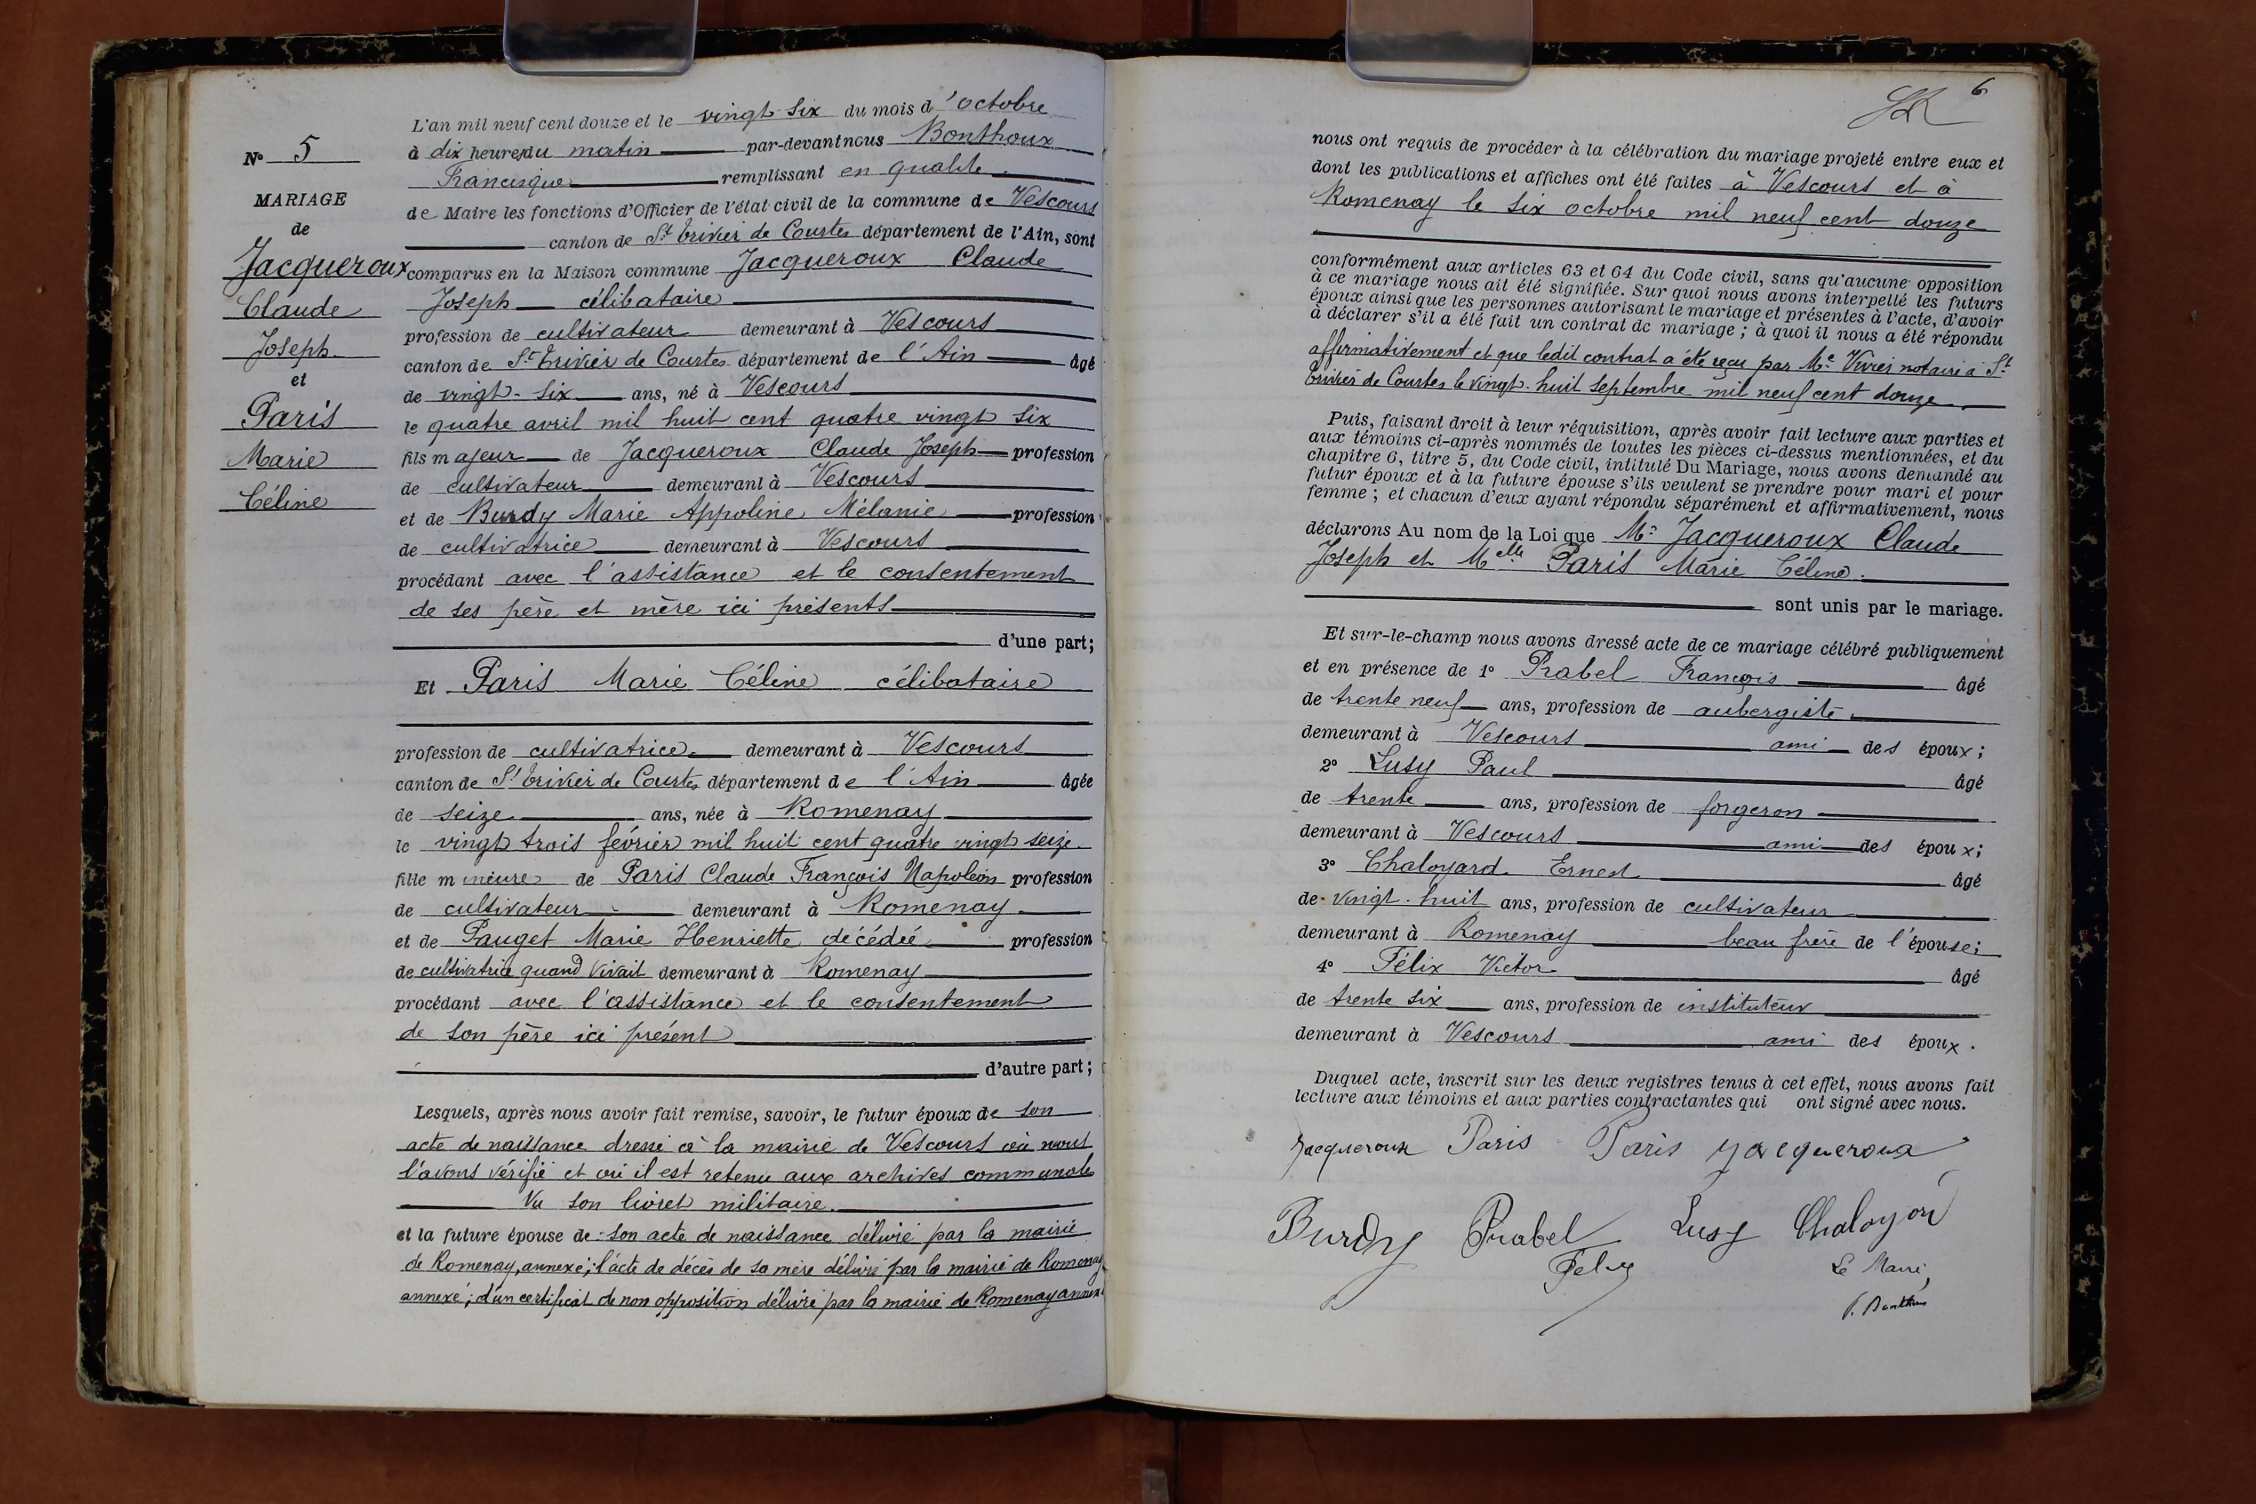 N° 5
MARIAGE
de
Jacqueroux
Claude
Joseph
et
Paris
Marie
Céline
L'an mil neuf cent douze et le vingt six du mois d'octobre
à dix heures du matin par-devant nous Bonthoux
Francisque remplissant en qualité
de Maire les fonctions d'Officier de l'état civil de la commune de Vescours
canton de St Trivier de Courtes département de l'Ain, sont
comparus en la Maison commune Jacqueroux Claude
Joseph célibataire
profession de cultivateur demeurant à Vescours
canton de St Trivier de Courtes département de l'Ain âgé
de vingt-six ans, né à Vescours
le quatre avril mil huit cent quatre vingt six
fils majeur de Jacqueroux Claude Joseph profession
de cultivateur demeurant à Vescours
et de Burdy Marie Appoline Mélanie profession
de cultivatrice demeurant à Vescours
procédant avec l'assistance et le consentement
de ses père et mère ici présents
d'une part;
Et Paris Marie Céline célibataire
profession de cultivatrice demeurant à Vescours
canton de St Trivier de Courtes département de l'Ain âgée
de seize ans, née à Romenay
le vingt trois février mil huit cent quatre vingt seize
fille mineure de Paris Claude François Napoléon profession
de cultivateur demeurant à Romenay
et de Pauget Marie Henriette décédée profession
de cultivatrice quand vivait demeurant à Romenay
procédant avec l'assistance et le consentement
de son père ici présent
d'autre part;
Lesquels, après nous avoir fait remise, savoir, le futur époux de son
acte de naissance dressé à la mairie de Vescours où nous
l'avons vérifié et où il est retenu aux archives communales
Vu son livret militaire.
et la future épouse de son acte de naissance délivré par la mairie
de Romenay, annexé; l'acte de décès de sa mère délivré par la mairie de Romenay
annexé; d'un certificat de non opposition délivré par la mairie de Romenay annexé
6
nous ont requis de procéder à la célébration du mariage projeté entre eux et
dont les publications et affiches ont été faites à Vescours et à
Romenay le six octobre mil neuf cent douze
conformément aux articles 63 et 64 du Code civil, sans qu'aucune opposition
à ce mariage nous ait été signifiée. Sur quoi nous avons interpellé les futurs
époux ainsi que les personnes autorisant le mariage et présentes à l'acte, d'avoir
à déclarer s'il a été fait un contrat de mariage; à quoi il nous a été répondu
affirmativement et que ledit contrat a été reçu par Me notaire à St
Trivier de Courtes le vingt-huit septembre mil neuf cent douze.
Puis, faisant droit à leur réquisition, après avoir fait lecture aux parties et
aux témoins ci-après nommés de toutes les pièces ci-dessus mentionnées, et du
chapitre 6, titre 5, du Code civil, intitulé Du Mariage, nous avons demandé au
futur époux et à la future épouse s'ils veulent se prendre pour mari et pour
femme; et chacun d'eux ayant répondu séparément et affirmativement, nous
déclarons Au nom de la Loi que Mr Jacqueroux Claude
Joseph et Melle Paris Marie Céline.
sont unis par le mariage.
Et sur-le-champ nous avons dressé acte de ce mariage célébré publiquement
et en présence de 1° Prabel François âgé
de trente neuf ans, profession de aubergiste
demeurant à Vescours ami des époux;
2° Lusy Paul âgé
de trente ans, profession de forgeron
demeurant à Vescours ami des époux;
3° Chaloyard Ernest âgé
de vingt-huit ans, profession de cultivateur
demeurant à Romenay beau frère de l'épouse;
4° Félix Victor âgé
de trente six ans, profession de instituteur
demeurant à Vescours ami des époux.
Duquel acte, inscrit sur les deux registres tenus à cet effet, nous avons fait
lecture aux témoins et aux parties contractantes qui ont signé avec nous.
Jacqueroux Paris Paris Jacqueroux
Burdy Prabel Lusy
Félix Le Maire,
F. Bonthoux